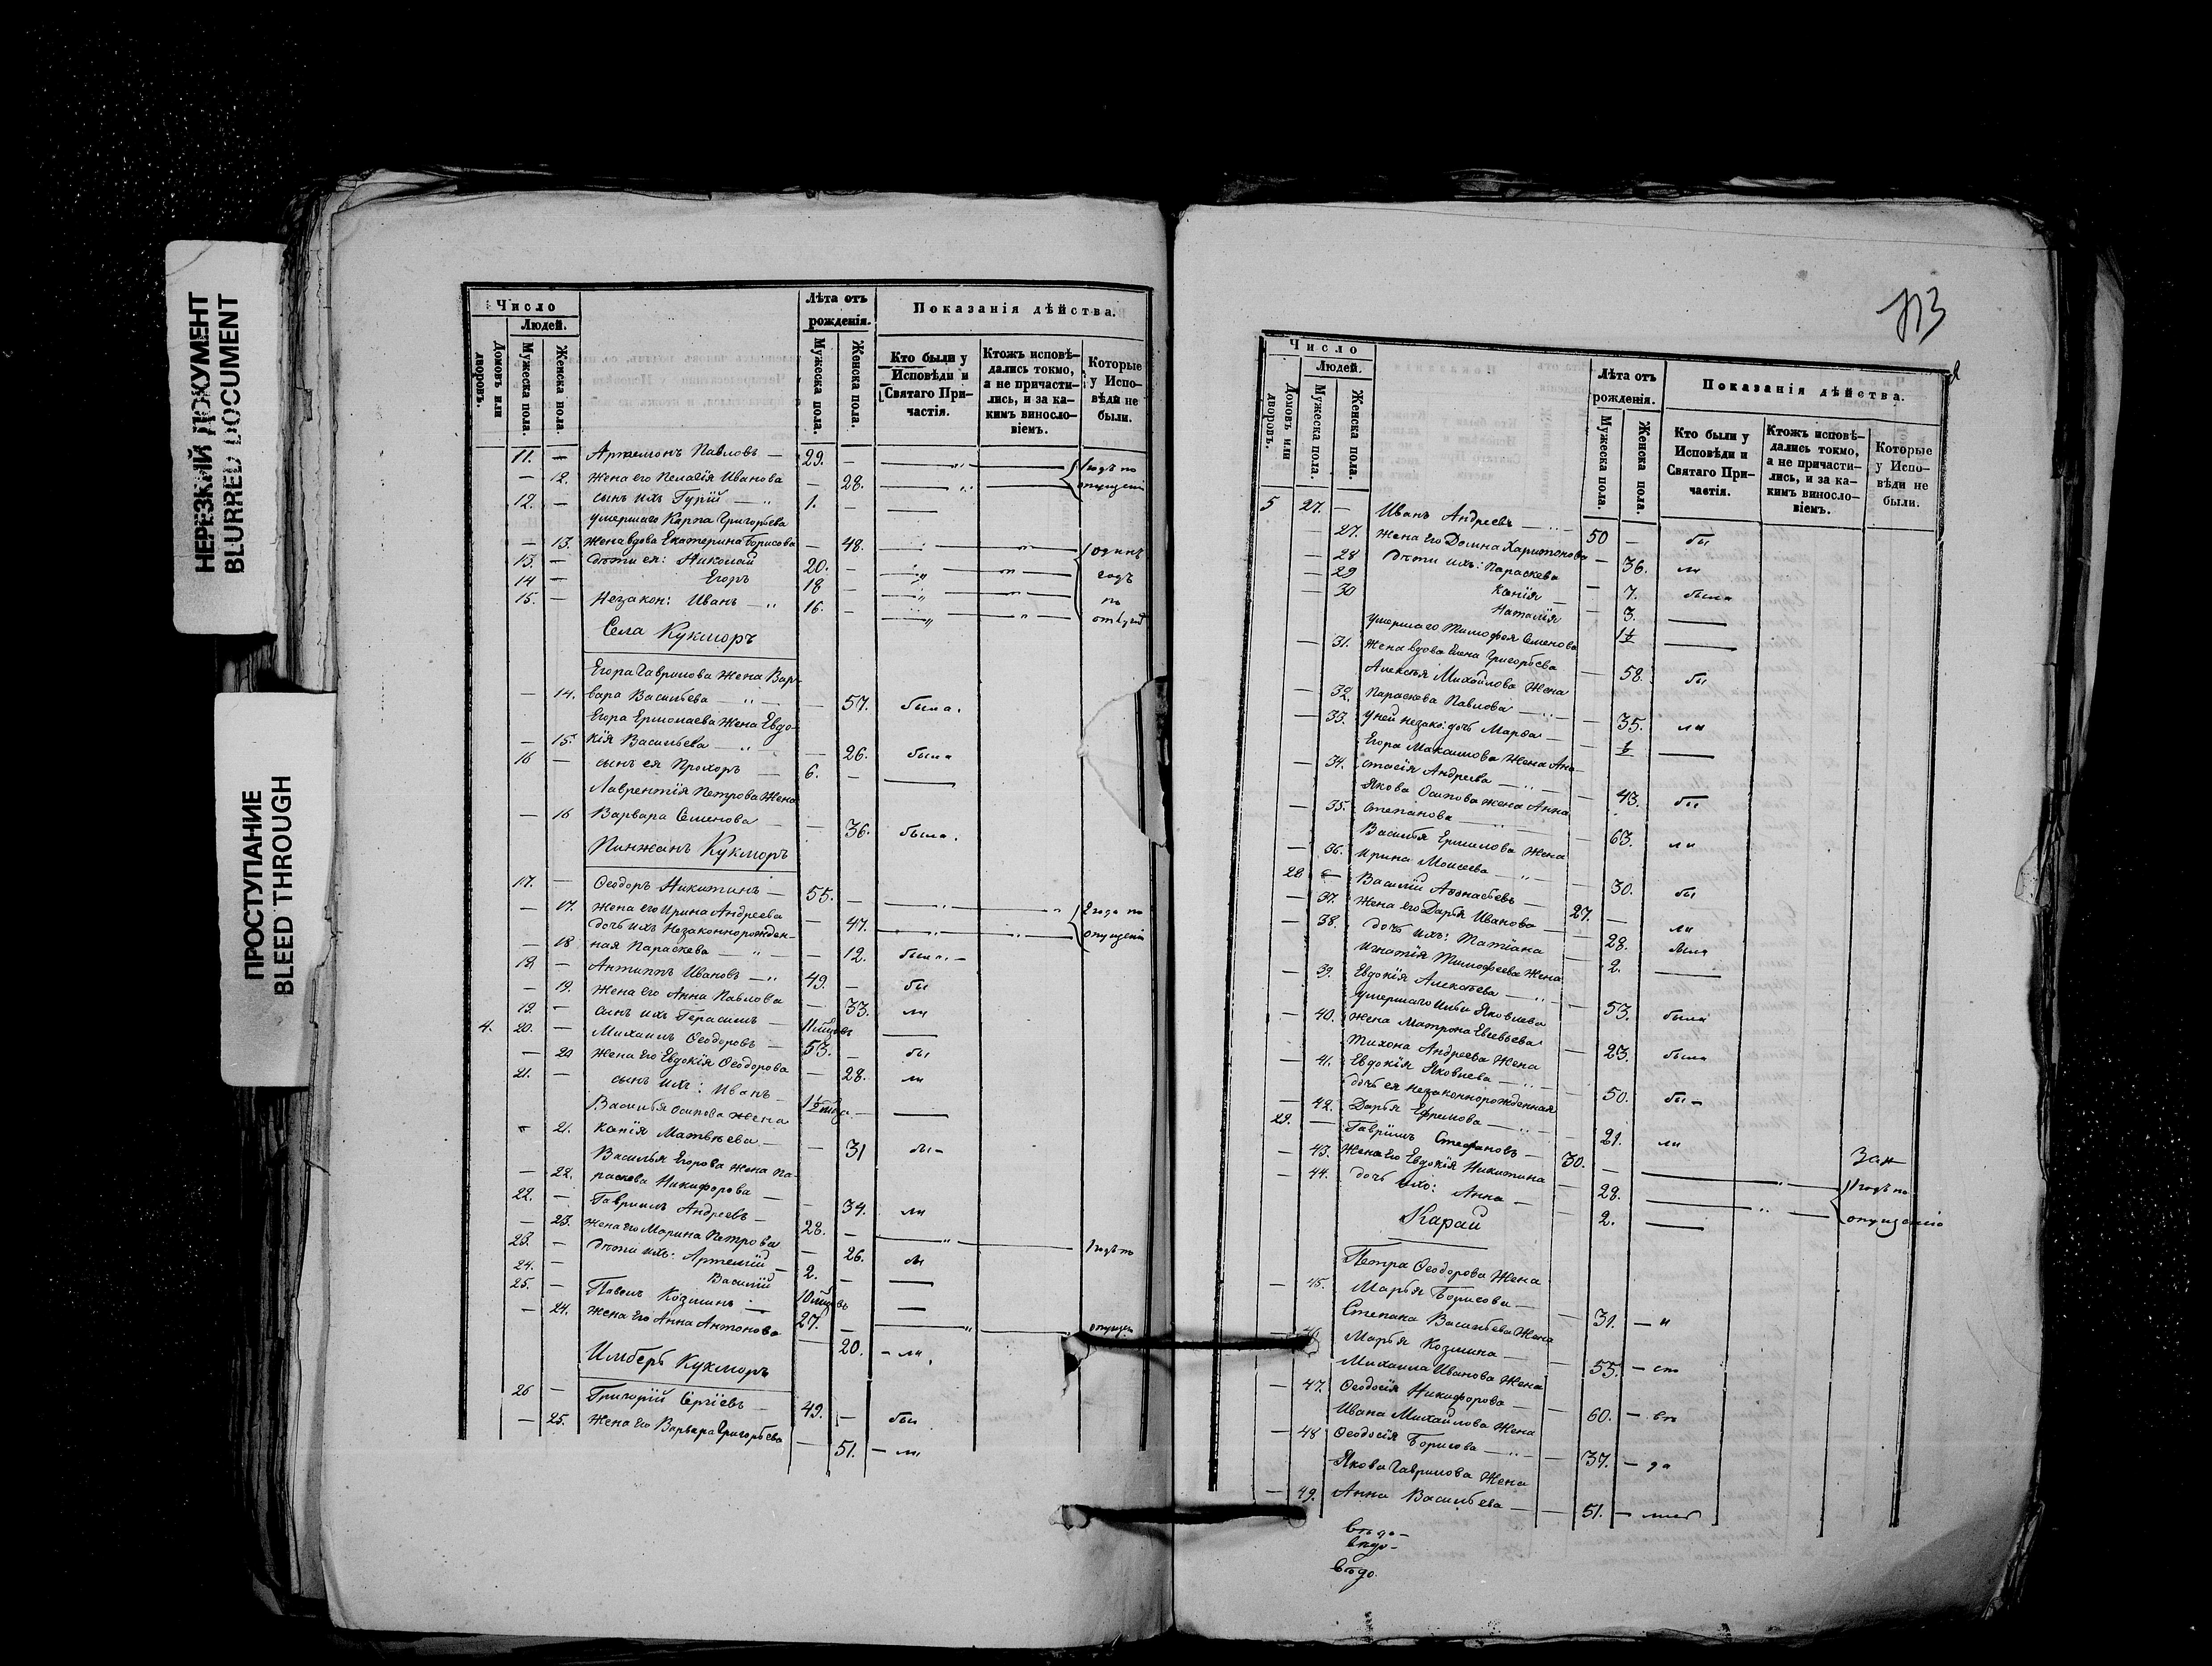 НЕРЕЗКИЙ ДОКУМЕНТ
BLURRED DOCUMENT
ПРОСТУПАНИЕ
BLEED THROUGH
Число
Людей.
Домовъ или дворовъ.
Мужеска пола.
Женска пола.
Лѣта отъ рожденія.
Мужеска пола.
Женска пола.
Показанія дѣйства.
Кто были у Исповѣди и Святаго Причастія.
Ктожъ исповѣдались токмо, а не причастились, и за какимъ винословіемъ.
Которые у Исповѣди не были.
11. — Артемонъ Павловъ — 29. — 1 годъ по
— 12. Жена его Пелагія Иванова — 28. опущенію
12. — сынъ ихъ Гурій — 1. —
умершаго Карпа Григорьева
— 13. Жена вдова Екатерина Борисова — 48. одинъ
13. — дѣти ея: Николай 20. — годъ
14 — Егоръ 18 — по
15. — Незакон: Иванъ 16. —
Села Кукморъ
Егора Гаврилова Жена Вар-
— 14. вара Васильева — 57. была.
Егора Ермолаева Жена Евдо-
— 15. кія Васильева — 26. была
16 — сынъ ея Прохоръ — 6. —
Лаврентія Петрова Жена
— 16 Варвара Семенова — 36. была.
Пинжанъ Кукморъ
17. — Ѳеодоръ Никитинъ — 55. — 2 года по
— 17. Жена его Ирина Андреева — 47. опущенію
дочь ихъ Незаконнорожден-
— 18 ная Параскева — 12. была. —
18 — Антипъ Ивановъ — 49. — бы
— 19. Жена его Анна Павлова — 33. ли
19. — сынъ ихъ Герасимъ — 11 мцовъ
4. 20. — Михаилъ Ѳеодоровъ — 53. — бы
— 20 Жена его Евдокія Ѳеодорова — 28. ли
21. — сынъ ихъ: Иванъ — 1½ года —
Василья Осипова Жена
— 21. Ксенія Матвѣева — 31 бы —
Василья Егорова Жена Па-
— 22. раскева Никифорова — 34. ли
22. — Гавриилъ Андреевъ — 28. — 1 годъ по
— 23. Жена его Марина Петрова — 26. бы
23. — дѣти ихъ: Артемій — 2. —
24. — Василій 10 мцовъ
25. — Павелъ Козминъ — 27. — опущен
— 24. Жена его Анна Антонова 20. — ли.
Имберь Кукморъ
26 — Григорій Сергіевъ — 49. — бы
— 25. Жена его Варвара Григорьева — 51. — ли
113
Число
Людей.
Домовъ или дворовъ.
Мужеска пола.
Женска пола.
Лѣта отъ рожденія.
Мужеска пола.
Женска пола.
Показанія дѣйства.
Кто были у Исповѣди и Святаго Причастія.
Ктожъ исповѣдались токмо, а не причастились, и за какимъ винословіемъ.
Которые у Исповѣди не были.
5 27. — Иванъ Андреевъ — 50 — бы
27. Жена его Домна Харитонова — 36. ли
— 28 дѣти ихъ: Параскева — 7. была
— 29 Ксенія — 3.
— 30 Наталія 1½
умершаго Тимофея Семенова
— 31. Жена вдова Елена Григорьева — 58. бы
Алексѣя Михайлова Жена
— 32. Параскева Павлова — 35. ли
— 33. У ней незакон. дочь Марѳа — ½
Егора Максимова Жена Ана-
— 34. стасія Андреева — 43. бы
Якова Осипова Жена Анна
— 35. Степанова — 63. ли
Василья Ермилова Жена
— 36. Ирина Моисеева — 30. бы
28 — Василій Аѳонасьевъ — 27. — ли
— 37. Жена его Дарья Иванова — 28. была
— 38. дочь ихъ: Татіана — 2.
Игнатія Тимофеева Жена
— 39. Евдокія Алексѣева — 53. была
умершаго Ильи Яковлева
— 40. Жена Матрона Евсевьева — 23. была
Тихона Андреева Жена
— 41. Евдокія Яковлева — 50. бы —
дочь ея незаконнорожденная
— 42. Дарья Ефимова — 21. ли
29. — Гавріилъ Стефановъ — 30. — 1 годъ по
— 43. Жена его Евдокія Никитина — 28. опущенію
— 44. дочь ихъ: Анна — 2.
Карай
Петра Ѳеодорова Жена
— 45. Марья Борисова — 31. — и
Степана Васильева Жена
— 46. Марья Козмина — 55. — спо
Михаила Иванова Жена
— 47. Ѳеодосія Никифорова — 60. — вѣ
Ивана Михайлова Жена
— 48 Ѳеодосія Борисова — 37. — да
Якова Гаврилова Жена
— 49. Анна Васильева — 51. —